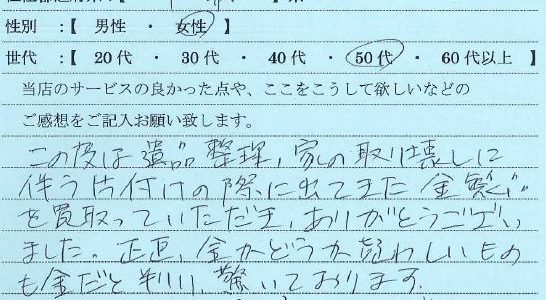 性別 :【 男性 ・ 女性 】
世代 :【 20代 ・ 30代 ・ 40代 ・ 50代 ・ 60代以上 】
当店のサービスの良かった点や、ここをこうして欲しいなどの
ご感想をご記入お願い致します。
この度は遺品整理、家の取り壊しに
伴う片付けの際に出てきた金製品
を買取っていただき、ありがとうござい
ました。正直、金かどうか疑わしいもの
も金だと判り、驚いております。